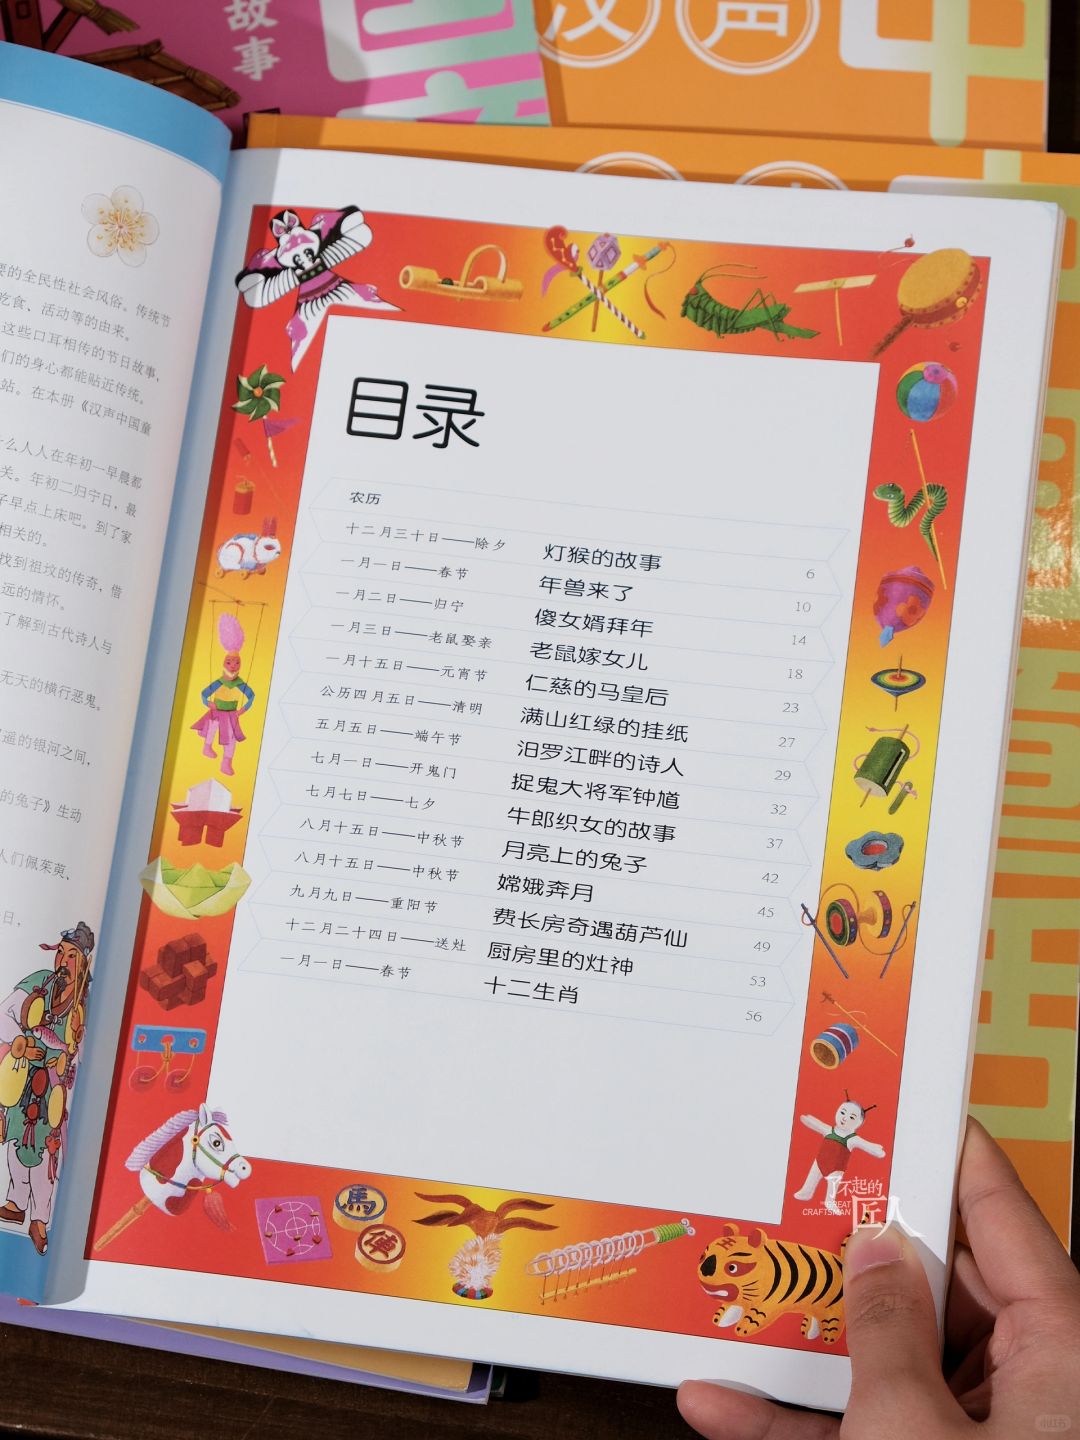 故事
汉声中
要的全民性社会风俗。传统节
吃食、活动等的由来。
这些口耳相传的节日故事，
们的身心都能贴近传统。
站。在本册《汉声中国童
什么人人在年初一早晨都
关。年初二归宁日，最
子早点上床吧。到了家
相关的。
找到祖坟的传奇，借
远的情怀。
了解到古代诗人与
无天的横行恶鬼。
遥的银河之间，
的兔子》生动
人们佩茱萸、
日，
目录
农历
十二月三十日——除夕 灯猴的故事 6
一月一日——春节 年兽来了 10
一月二日——归宁 傻女婿拜年 14
一月三日——老鼠娶亲 老鼠嫁女儿 18
一月十五日——元宵节 仁慈的马皇后 23
公历四月五日——清明 满山红绿的挂纸 27
五月五日——端午节 汨罗江畔的诗人 29
七月一日——开鬼门 捉鬼大将军钟馗 32
七月七日——七夕 牛郎织女的故事 37
八月十五日——中秋节 月亮上的兔子 42
八月十五日——中秋节 嫦娥奔月 45
九月九日——重阳节 费长房奇遇葫芦仙 49
十二月二十四日——送灶 厨房里的灶神 53
一月一日——春节 十二生肖 56
馬
俥
了不起的
匠人
THE GREAT
CRAFTSMAN
小红书